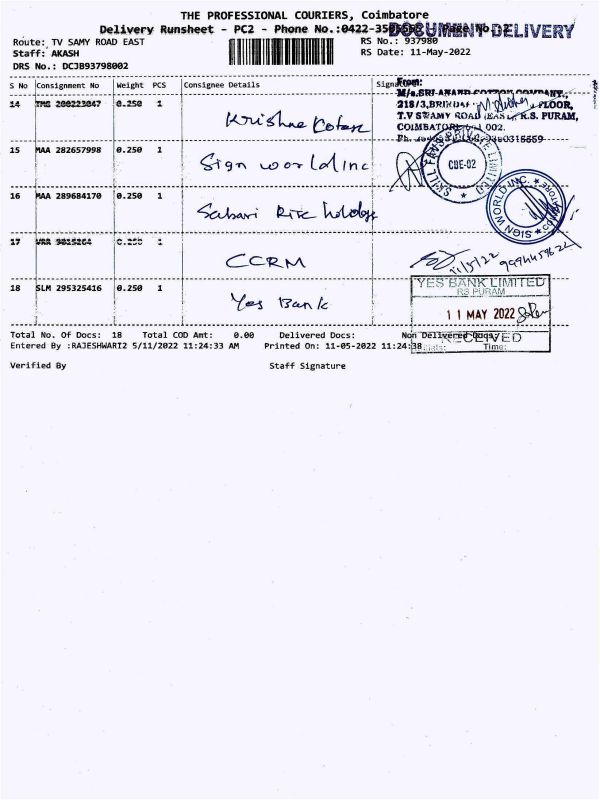 THE PROFESSIONAL COURIERS, Coimbatore
Delivery Runsheet - PC2 - Phone No.:0422-35 Page No.:2
DOCUMENT DELIVERY
Route: TV SAMY ROAD EAST
RS No.: 937980
Staff: AKASH
RS Date: 11-May-2022
DRS No.: DCJB93798002
S No Consignment No Weight PCS Consignee Details Signature
From:
M/s.SRI ANAND COTTON COMPANY.,
218/3, FLOOR,
T.V SWAMY ROAD (EAST), R.S. PURAM,
COIMBATORE 002.
14 TMS 200223047 0.250 1 Krishna
15 MAA 282657998 0.250 1 Sign world inc
SKILL PRIVATE LIMITED
CBE-02
16 MAA 289684170 0.250 1 Sabari
SIGN WORLD INC.
17 0.250 1 CCRM
11/5/22
18 SLM 295325416 0.250 1 Yes Bank
YES BANK LIMITED
RS PURAM
11 MAY 2022
RECEIVED
Time:
Total No. Of Docs: 18 Total COD Amt: 0.00 Delivered Docs: Non Delivered Docs:
Entered By :RAJESHWARI2 5/11/2022 11:24:33 AM Printed On: 11-05-2022 11:24:38
Verified By Staff Signature